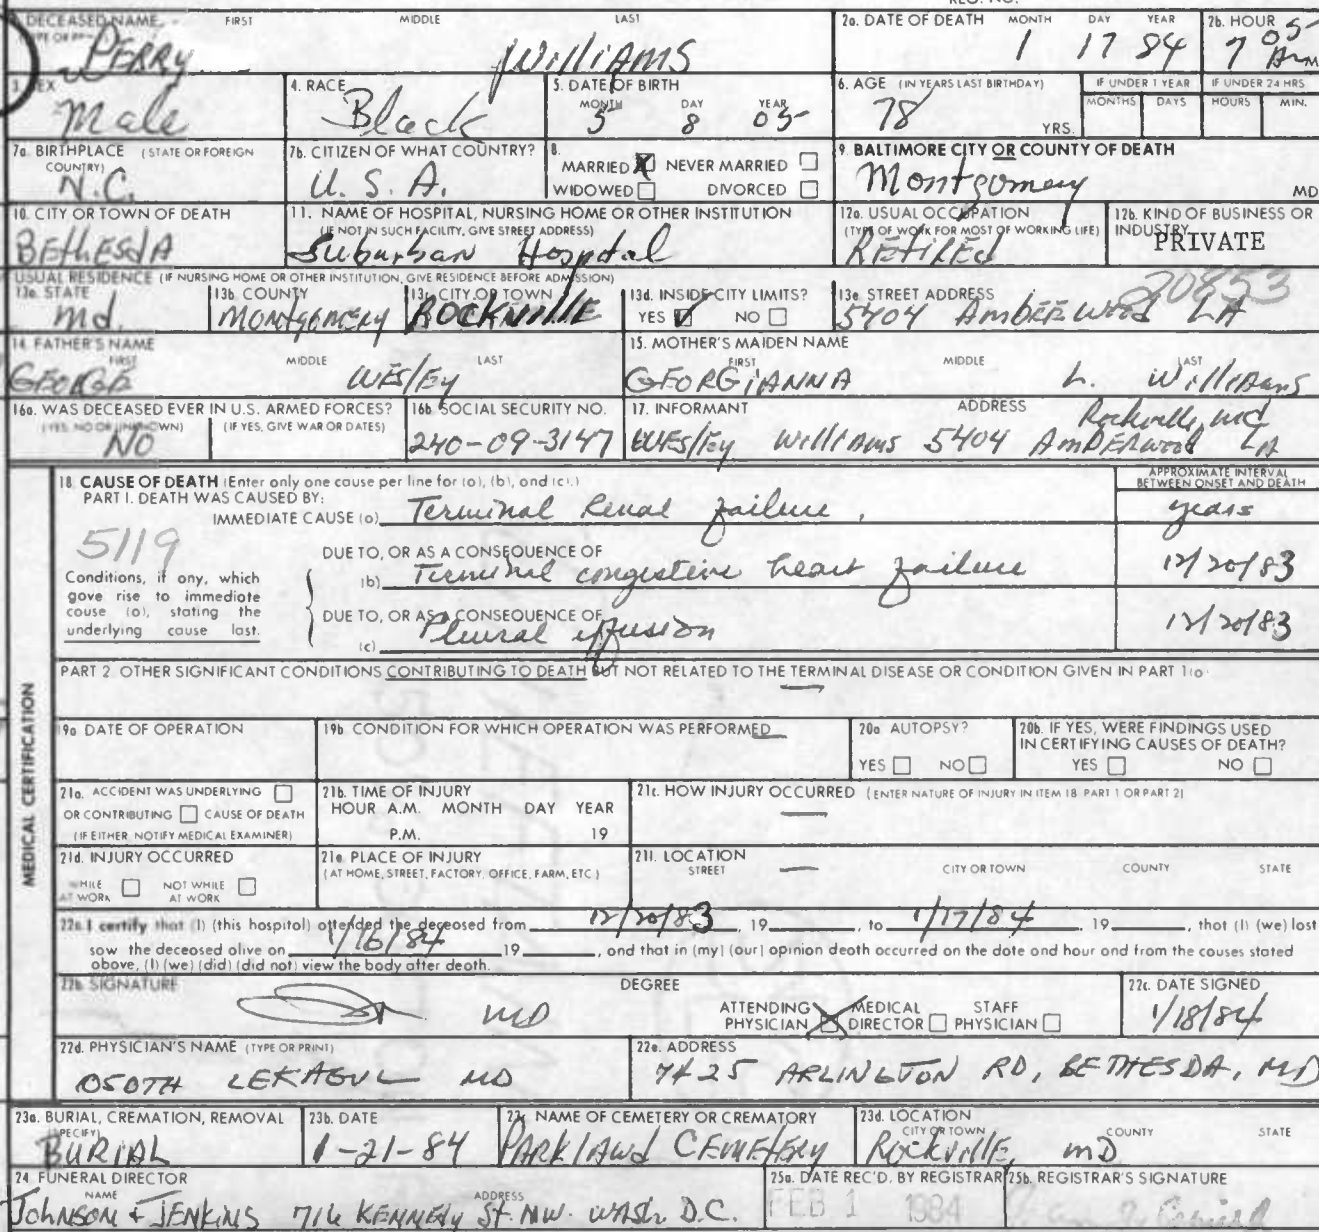 1. DECEASED NAME FIRST MIDDLE LAST
PERRY Williams
2a. DATE OF DEATH MONTH DAY YEAR
1 17 84
2b. HOUR
7 05 AM
3. SEX
Male
4. RACE
Black
5. DATE OF BIRTH
MONTH DAY YEAR
5 8 05
6. AGE (IN YEARS LAST BIRTHDAY)
78 YRS.
IF UNDER 1 YEAR
MONTHS DAYS
IF UNDER 24 HRS
HOURS MIN.
7a. BIRTHPLACE (STATE OR FOREIGN
COUNTRY)
N.C.
7b. CITIZEN OF WHAT COUNTRY?
U. S. A.
8.
MARRIED X NEVER MARRIED
WIDOWED DIVORCED
9. BALTIMORE CITY OR COUNTY OF DEATH
Montgomery MD
10. CITY OR TOWN OF DEATH
BETHESDA
11. NAME OF HOSPITAL, NURSING HOME OR OTHER INSTITUTION
(IF NOT IN SUCH FACILITY, GIVE STREET ADDRESS)
Suburban Hospital
12a. USUAL OCCUPATION
(TYPE OF WORK FOR MOST OF WORKING LIFE)
RETIREd
12b. KIND OF BUSINESS OR
INDUSTRY
PRIVATE
USUAL RESIDENCE (IF NURSING HOME OR OTHER INSTITUTION, GIVE RESIDENCE BEFORE ADMISSION)
13a. STATE
Md.
13b. COUNTY
MONTgomERy
13c. CITY OR TOWN
ROCKVILLE
13d. INSIDE CITY LIMITS?
YES NO
13e. STREET ADDRESS
20853
5404 AmbERWood LA
14. FATHER'S NAME
FIRST MIDDLE LAST
GEORGE WESlEy
15. MOTHER'S MAIDEN NAME
FIRST MIDDLE LAST
GEORGiANNA L. Williams
16a. WAS DECEASED EVER IN U.S. ARMED FORCES?
(YES, NO OR UNKNOWN) (IF YES, GIVE WAR OR DATES)
NO
16b. SOCIAL SECURITY NO.
240-09-3147
17. INFORMANT ADDRESS
Rockville, md
WESlEy Williams 5404 AmbERwood LA
MEDICAL CERTIFICATION
18. CAUSE OF DEATH (Enter only one cause per line for (a), (b), and (c).)
PART I. DEATH WAS CAUSED BY:
APPROXIMATE INTERVAL
BETWEEN ONSET AND DEATH
IMMEDIATE CAUSE (a) Terminal Renal failure, years
5119
DUE TO, OR AS A CONSEQUENCE OF
(b) Terminal congestive heart failure 12/20/83
Conditions, if any, which
gave rise to immediate
cause (a), stating the
underlying cause last.
DUE TO, OR AS A CONSEQUENCE OF
(c) Pleural effusion 12/20/83
PART 2. OTHER SIGNIFICANT CONDITIONS CONTRIBUTING TO DEATH BUT NOT RELATED TO THE TERMINAL DISEASE OR CONDITION GIVEN IN PART 1(a)
19a. DATE OF OPERATION
19b. CONDITION FOR WHICH OPERATION WAS PERFORMED
20a. AUTOPSY?
YES NO
20b. IF YES, WERE FINDINGS USED
IN CERTIFYING CAUSES OF DEATH?
YES NO
21a. ACCIDENT WAS UNDERLYING
OR CONTRIBUTING CAUSE OF DEATH
(IF EITHER, NOTIFY MEDICAL EXAMINER)
21b. TIME OF INJURY
HOUR A.M. MONTH DAY YEAR
P.M. 19
21c. HOW INJURY OCCURRED (ENTER NATURE OF INJURY IN ITEM 18 PART 1 OR PART 2)
21d. INJURY OCCURRED
WHILE AT WORK NOT WHILE AT WORK
21e. PLACE OF INJURY
(AT HOME, STREET, FACTORY, OFFICE, FARM, ETC)
21f. LOCATION
STREET CITY OR TOWN COUNTY STATE
22a. I certify that (I) (this hospital) attended the deceased from 12/20/83, 19 , to 1/17/84 19 , that (I) (we) last
saw the deceased alive on 1/16/84 19 , and that in (my) (our) opinion death occurred on the date and hour and from the causes stated
above, (I) (we) (did) (did not) view the body after death.
22b. SIGNATURE DEGREE
MD
ATTENDING PHYSICIAN X MEDICAL DIRECTOR STAFF PHYSICIAN
22c. DATE SIGNED
1/18/84
22d. PHYSICIAN'S NAME (TYPE OR PRINT)
OSOTH LEKAGUL MD
22e. ADDRESS
7425 ARLINGTON RD, BETHESDA, MD
23a. BURIAL, CREMATION, REMOVAL
(SPECIFY)
BURIAL
23b. DATE
1-21-84
23c. NAME OF CEMETERY OR CREMATORY
PARKlAwd CEMETERy
23d. LOCATION
CITY OR TOWN COUNTY STATE
Rockville, mD
24. FUNERAL DIRECTOR
NAME ADDRESS
JohNSON & JENKINS 716 KENNEDy St. NW. WASh. D.C.
25a. DATE REC'D. BY REGISTRAR
FEB 1 1984
25b. REGISTRAR'S SIGNATURE